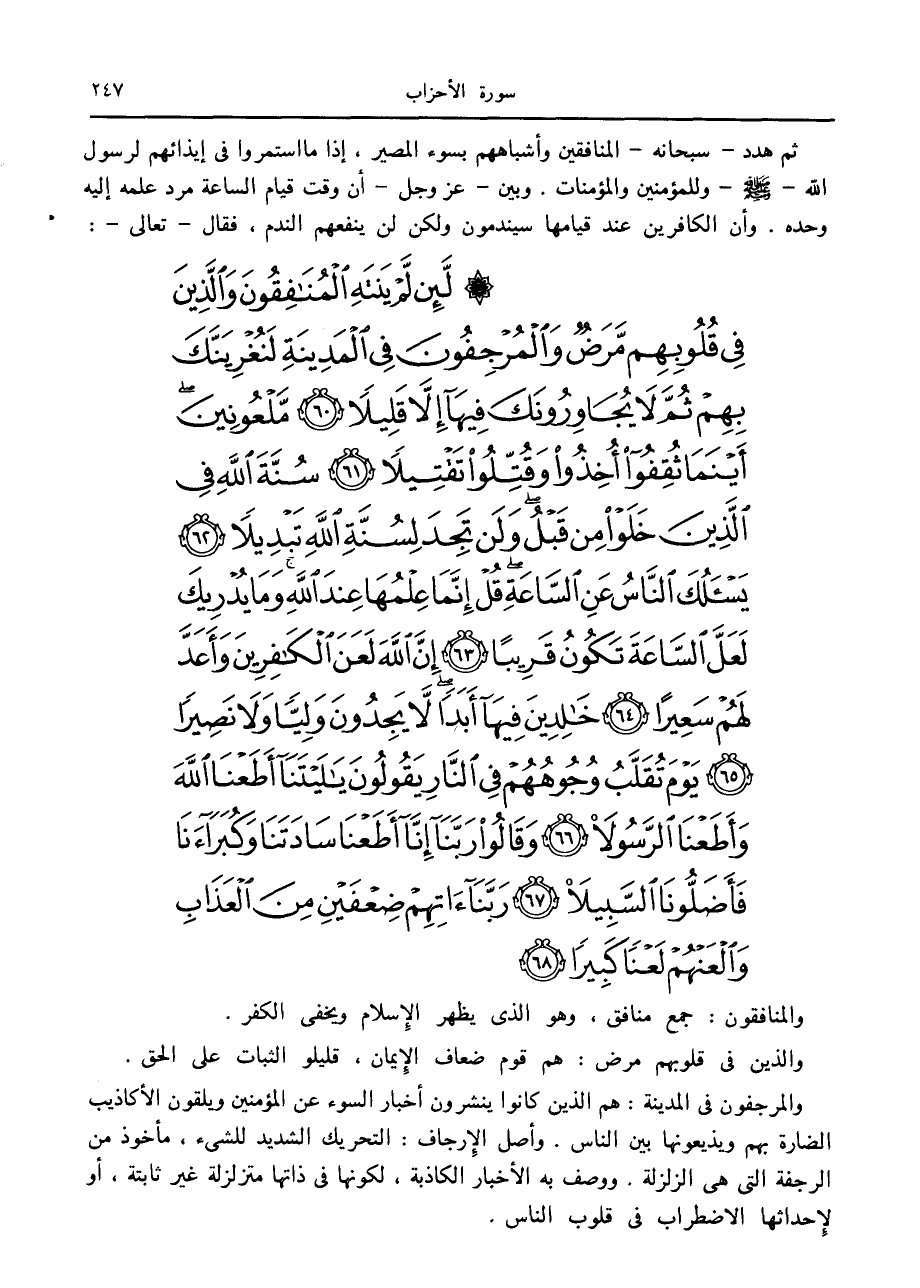 سورة الأحزاب ٢٤٧
ثم هدد – سبحانه – المنافقين وأشباههم بسوء المصير ، إذا مااستمروا فى إيذائهم لرسول
الله – ﷺ – وللمؤمنين والمؤمنات . وبين – عز وجل – أن وقت قيام الساعة مرد علمه إليه
وحده . وأن الكافرين عند قيامها سيندمون ولكن لن ينفعهم الندم ، فقال – تعالى – :
۞ لَّئِن لَّمْ يَنتَهِ ٱلْمُنَٰفِقُونَ وَٱلَّذِينَ
فِى قُلُوبِهِم مَّرَضٌ وَٱلْمُرْجِفُونَ فِى ٱلْمَدِينَةِ لَنُغْرِيَنَّكَ
بِهِمْ ثُمَّ لَا يُجَاوِرُونَكَ فِيهَآ إِلَّا قَلِيلًا ٦٠ مَّلْعُونِينَ ۖ
أَيْنَمَا ثُقِفُوٓا۟ أُخِذُوا۟ وَقُتِّلُوا۟ تَقْتِيلًا ٦١ سُنَّةَ ٱللَّهِ فِى
ٱلَّذِينَ خَلَوْا۟ مِن قَبْلُ ۖ وَلَن تَجِدَ لِسُنَّةِ ٱللَّهِ تَبْدِيلًا ٦٢
يَسْـَٔلُكَ ٱلنَّاسُ عَنِ ٱلسَّاعَةِ ۖ قُلْ إِنَّمَا عِلْمُهَا عِندَ ٱللَّهِ ۚ وَمَا يُدْرِيكَ
لَعَلَّ ٱلسَّاعَةَ تَكُونُ قَرِيبًا ٦٣ إِنَّ ٱللَّهَ لَعَنَ ٱلْكَٰفِرِينَ وَأَعَدَّ
لَهُمْ سَعِيرًا ٦٤ خَٰلِدِينَ فِيهَآ أَبَدًا ۖ لَّا يَجِدُونَ وَلِيًّا وَلَا نَصِيرًا
٦٥ يَوْمَ تُقَلَّبُ وُجُوهُهُمْ فِى ٱلنَّارِ يَقُولُونَ يَٰلَيْتَنَآ أَطَعْنَا ٱللَّهَ
وَأَطَعْنَا ٱلرَّسُولَا۠ ٦٦ وَقَالُوا۟ رَبَّنَآ إِنَّآ أَطَعْنَا سَادَتَنَا وَكُبَرَآءَنَا
فَأَضَلُّونَا ٱلسَّبِيلَا۠ ٦٧ رَبَّنَآ ءَاتِهِمْ ضِعْفَيْنِ مِنَ ٱلْعَذَابِ
وَٱلْعَنْهُمْ لَعْنًا كَبِيرًا ٦٨
والمنافقون : جمع منافق ، وهو الذى يظهر الإسلام ويخفى الكفر .
والذين فى قلوبهم مرض : هم قوم ضعاف الإيمان ، قليلو الثبات على الحق .
والمرجفون فى المدينة : هم الذين كانوا ينشرون أخبار السوء عن المؤمنين ويلقون الأكاذيب
الضارة بهم ويذيعونها بين الناس . وأصل الإرجاف : التحريك الشديد للشىء ، مأخوذ من
الرجفة التى هى الزلزلة . ووصف به الأخبار الكاذبة ، لكونها فى ذاتها متزلزلة غير ثابتة ، أو
لإحداثها الاضطراب فى قلوب الناس .